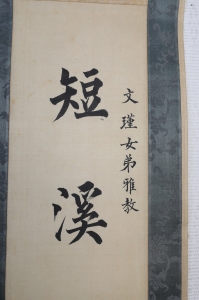 文瑾女弟雅教
短溪